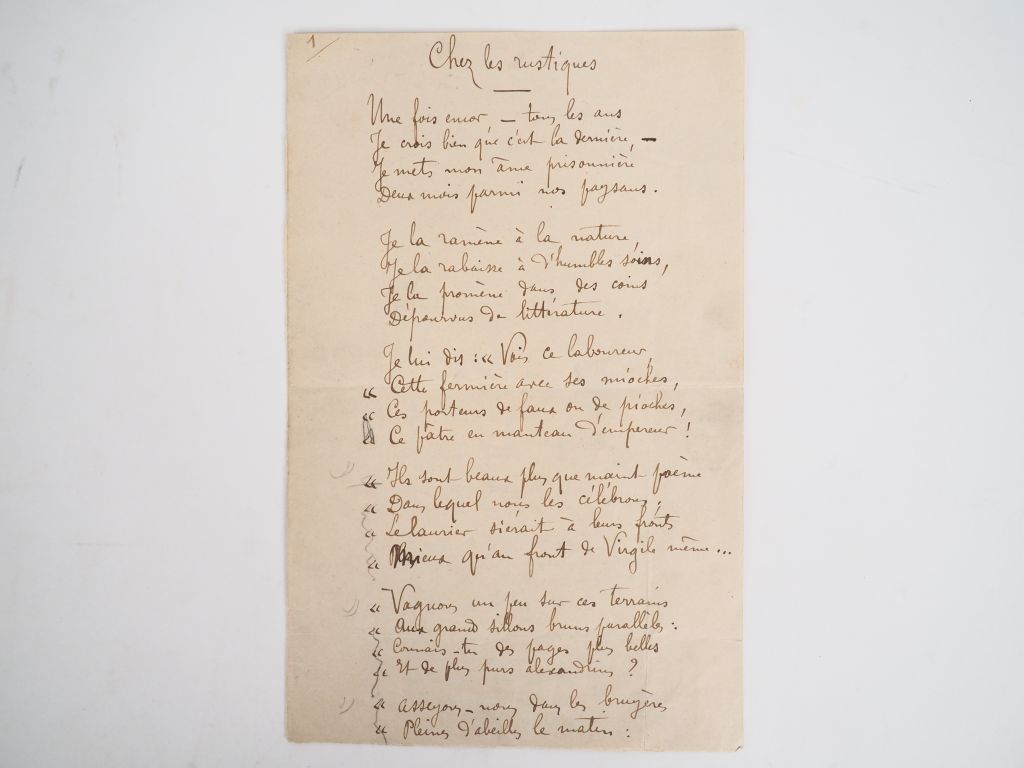 1/
Chez les rustiques
Une fois encor – tous les ans
Je crois bien que c'est la dernière, –
Je mets mon âme prisonnière
Deux mois parmi nos paysans.
Je la ramène à la nature,
Je la rabaisse à d'humbles soins,
Je la promène dans des coins
Dépourvus de littérature.
Je lui dis : « Vois ce laboureur,
« Cette fermière avec ses mioches,
« Ces porteurs de faux ou de pioches,
« Ce pâtre en manteau d'empereur !
« Ils sont beaux plus que maint poème
« Dans lequel nous les célébrons,
« Le laurier siérait à leurs fronts
« Mieux qu'au front de Virgile même...
« Vaguons un peu sur ces terrains
« Aux grands sillons bruns parallèles :
« Connais-tu des pages plus belles
« Et de plus purs alexandrins ?
« Asseyons-nous dans les bruyères
« Pleines d'abeilles le matin :